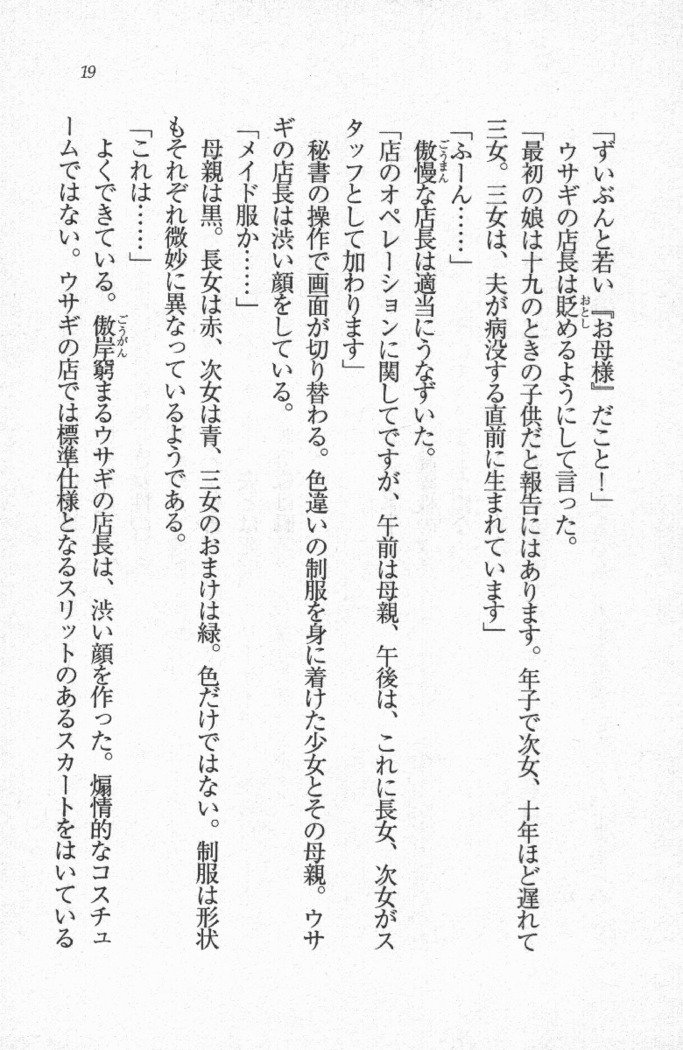 19
「ずいぶんと若い『お母様』だこと！」
ウサギの店長は貶めるようにして言った。
「最初の娘は十九のときの子供だと報告にはあります。年子で次女、十年ほど遅れて
三女。三女は、夫が病没する直前に生まれています」
「ふーん……」
傲慢な店長は適当にうなずいた。
「店のオペレーションに関してですが、午前は母親、午後は、これに長女、次女がス
タッフとして加わります」
秘書の操作で画面が切り替わる。色違いの制服を身に着けた少女とその母親。ウサ
ギの店長は渋い顔をしている。
「メイド服か……」
母親は黒。長女は赤、次女は青、三女のおまけは緑。色だけではない。制服は形状
もそれぞれ微妙に異なっているようである。
「これは……」
よくできている。傲岸窮まるウサギの店長は、渋い顔を作った。煽情的なコスチュ
ームではない。ウサギの店では標準仕様となるスリットのあるスカートをはいている
おとし
ごうまん
ごうがん